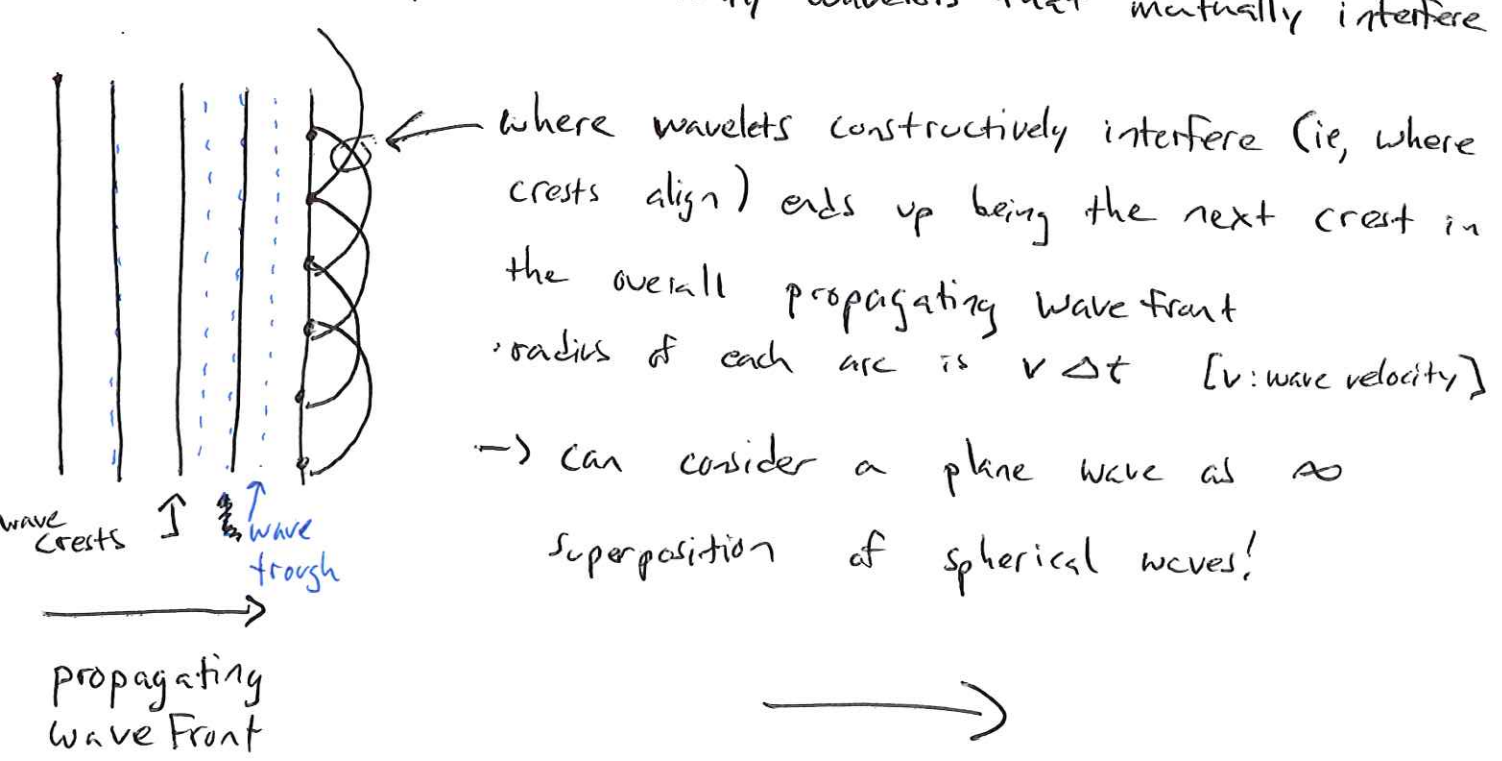 wavelets that mutually interfere
where wavelets constructively interfere (ie, where
crests align) ends up being the next crest in
the overall propagating wave front
·radius of each arc is v Δt [v: wave velocity]
→ can consider a plane wave as ∞
superposition of spherical waves!
wave
crests
wave
trough
propagating
wave Front